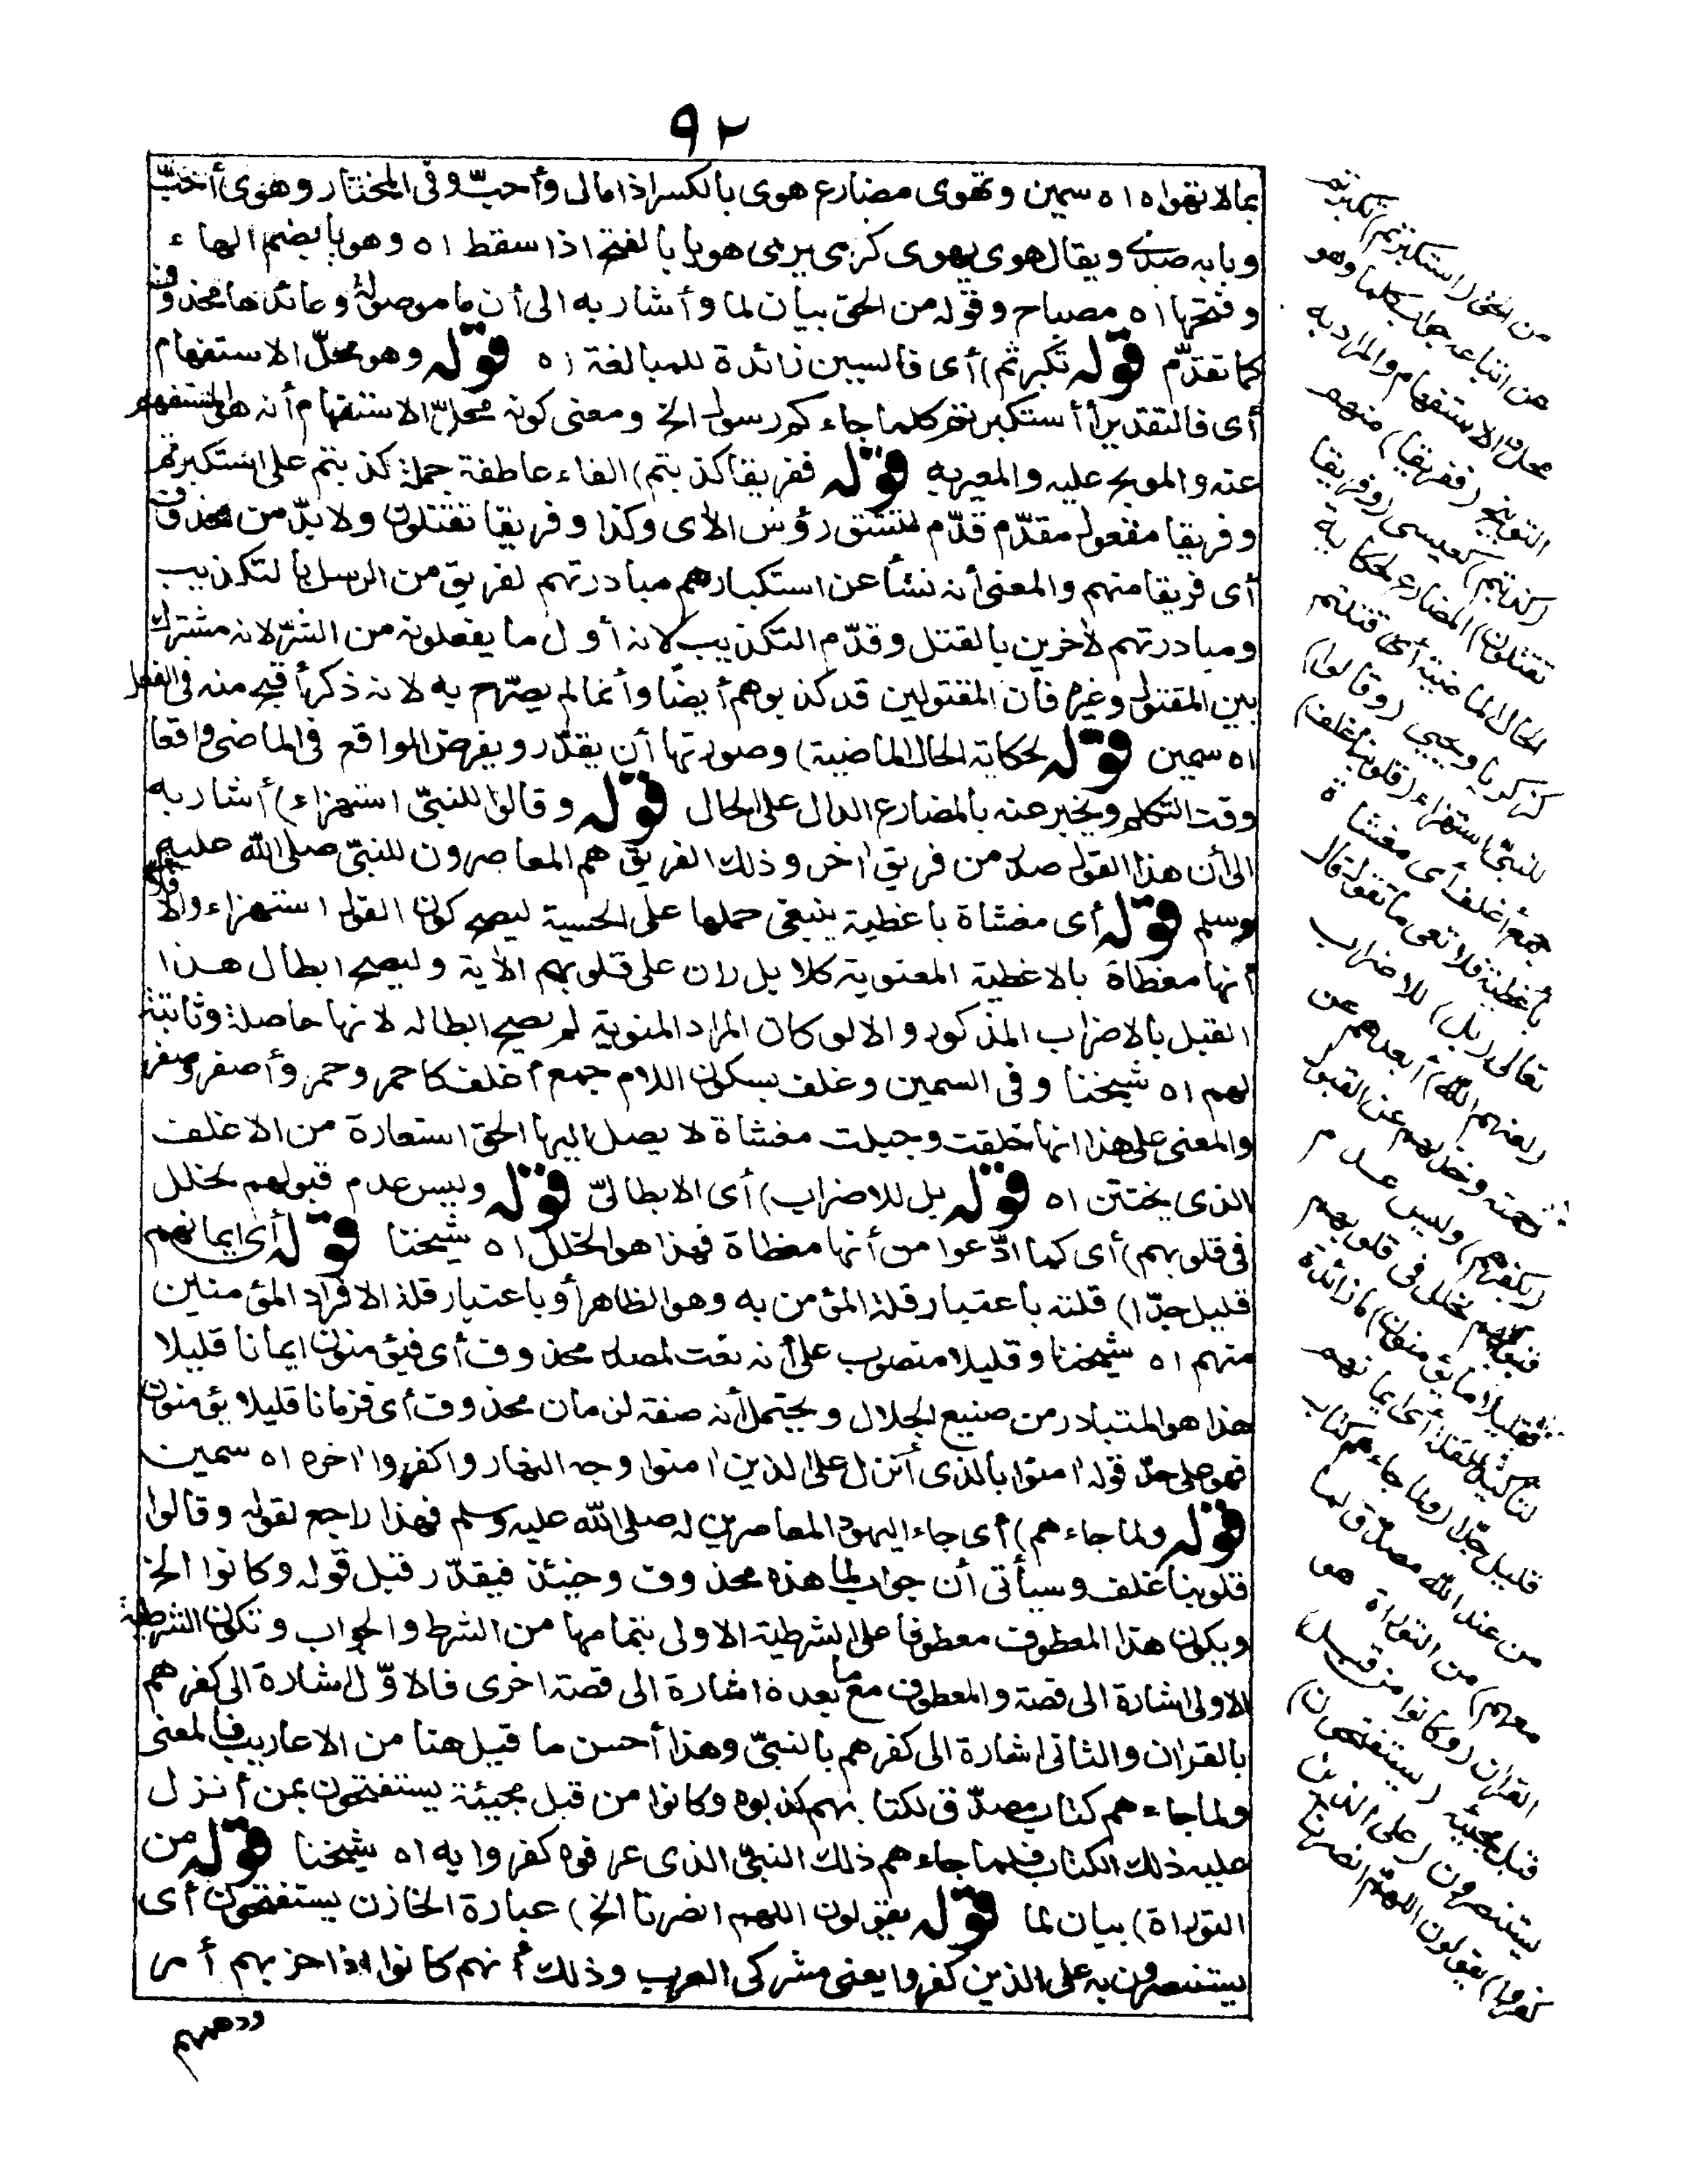 ٩٢
بما لا تهواه اه سمين وتهوى مضارع هوى بالكسر اذا مال وأحبّ وفى المختار وهوى أحبّ
وبابه صدى ويقال هوى يهوى كرمى يرمى هويا بالفتح اذا سقط اه وهويا بضم الهاء
وفتحها اه مصباح وقوله من الحق بيان لما وأشار به الى أن ما موصولة وعائدها محذوف
كما تقدّم قوله تكبرتم) أى فالسين زائدة للمبالغة اه قوله وهو محلّ الاستفهام
أى فالتقدير أأستكبرتم كلما جاءكم رسول الخ ومعنى كونه محلّ الاستفهام أنه هو المستفهم
عنه والموبخ عليه والمعير به قوله ففريقا كذبتم) الفاء عاطفة جملة كذبتم على استكبرتم
وفريقا مفعول مقدّم قدّم لتتسق رؤس الأى وكذا وفريقا تقتلون ولا بدّ من محذوف
أى فريقا منهم والمعنى أنه نشأ عن استكبارهم مبادرتهم لفريق من الرسل بالتكذيب
ومبادرتهم لأخرين بالقتل وقدّم التكذيب لانه أول ما يفعلونه من الشرّ لانه مشترك
بين المقتول وغيره فأن المقتولين قد كذبوهم أيضا وأنما لم يصرّح به لانه ذكر أقبح منه فى الفعل
اه سمين قوله لحكاية الحال الماضية) وصورتها أن يقدّر ويفرض الواقع فى الماضى واقعا
وقت التكلم ويخبر عنه بالمضارع الدال على الحال قوله وقالوا للنبىّ استهزاء) أشار به
الى أن هذا القول صدر من فريق أخر وذلك الفريق هم المعاصرون للنبىّ صلى الله عليه
وسلم قوله أى مغشاة باغطية ينبغى حملها على الحسية ليصح كون القول استهزاء والا فلا
أنها مغطاة بالاغطية المعنوية كلا بل ران على قلوبهم الأية وليصح ابطال هذا
القبل بالاضراب المذكور والا لو كان المراد المنوية لم يصح ابطاله لانها حاصلة وثابتة
لهم اه شيخنا وفى السمين وغلف بسكون اللام جمع أغلف كاحمر وحمر وأصفر وصفر
والمعنى على هذا انها خلقت وجبلت مغشاة لا يصل اليها الحق استعارة من الاغلف
الذى يختتن اه قوله بل للاضراب) أى الابطالىّ قوله وليس عدم قبولهم لخلل
فى قلوبهم) أى كما ادّعوا من أنها مغطاة فهذا هو الخلل اه شيخنا قوله أى ايمانهم
قليل جدّا) قلته باعتبار قلة المؤمن به وهو الظاهر أو باعتبار قلة الافراد المؤمنين
منهم اه شيخنا وقليلا منصوب على أنه نعت لمصدر محذوف أى فيؤمنون ايمانا قليلا
هذا هو المتبادر من صنيع الجلال ويحتمل أنه صفة لزمان محذوف أى فزمانا قليلا يؤمنون
فهو على حدّ قوله أمنوا بالذى أنزل على الذين أمنوا وجه النهار واكفروا أخره اه سمين
قوله ولما جاءهم) أى جاء اليهود المعاصرين له صلى الله عليه وسلم فهذا راجع لقوله وقالوا
قلوبنا غلف وسيأتى أن جواب لما هذه محذوف وحينئذ فيقدّر قبل قوله وكانوا الخ
ويكون هذا المعطوف معطوفا على الشرطية الاولى بتمامها من الشرط والجواب وتكون الشرطية
الاولى اشارة الى قصة والمعطوف مع ما بعده اشارة الى قصة اخرى فالاوّل اشارة الى كفرهم
بالقرأن والثانى اشارة الى كفرهم بالنبىّ وهذا أحسن ما قيل هنا من الاعاريب فالمعنى
ولما جاءهم كتاب مصدّق لكتابهم كذبوه وكانوا من قبل مجيئه يستفتحون بمن أنزل
عليه ذلك الكتاب فلما جاءهم ذلك النبىّ الذى عرفوه كفروا به اه شيخنا قوله من
التوراة) بيان لما قوله يقولون اللهم انصرنا الخ) عبارة الخازن يستفتحون أى
يستنصرون به على الذين كفروا يعنى مشركى العرب وذلك أنهم كانوا اذا حزبهم أمر
ودهمهم
من الحق (استكبرتم) تكبرتم
عن اتباعه جواب كلما وهو
محل الاستفهام والمراد به
التوبيخ (ففريقا) منهم
(كذبتم) كعيسى (وفريقا
تقتلون) المضارع لحكاية
الحال الماضية أى قتلتم
كزكريا ويحيى (وقالوا)
للنبىّ استهزاء (قلوبنا غلف)
جمع أغلف أى مغشاة
بأغطية فلا تعى ما تقول قال
تعالى (بل) للاضراب
(لعنهم الله) أبعدهم عن
رحمته وخذلهم عن القبول
(بكفرهم) وليس عدم
قبولهم لخلل فى قلوبهم
(فقليلا ما يؤمنون) ما زائدة
لتأكيد القلة أى ايمانهم
قليل جدّا (ولما جاءهم كتاب
من عند الله مصدّق لما
معهم) من التوراة هو
القرأن (وكانوا من قبل)
قبل مجيئه (يستفتحون)
يستنصرون (على الذين
كفروا) يقولون اللهمّ انصرنا